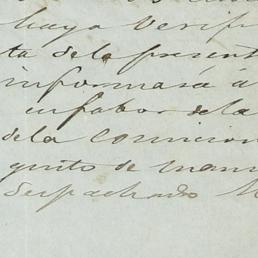 haya verif
ta de la present
informará a
en fabor de la
de la comicion
quito de man
despachado